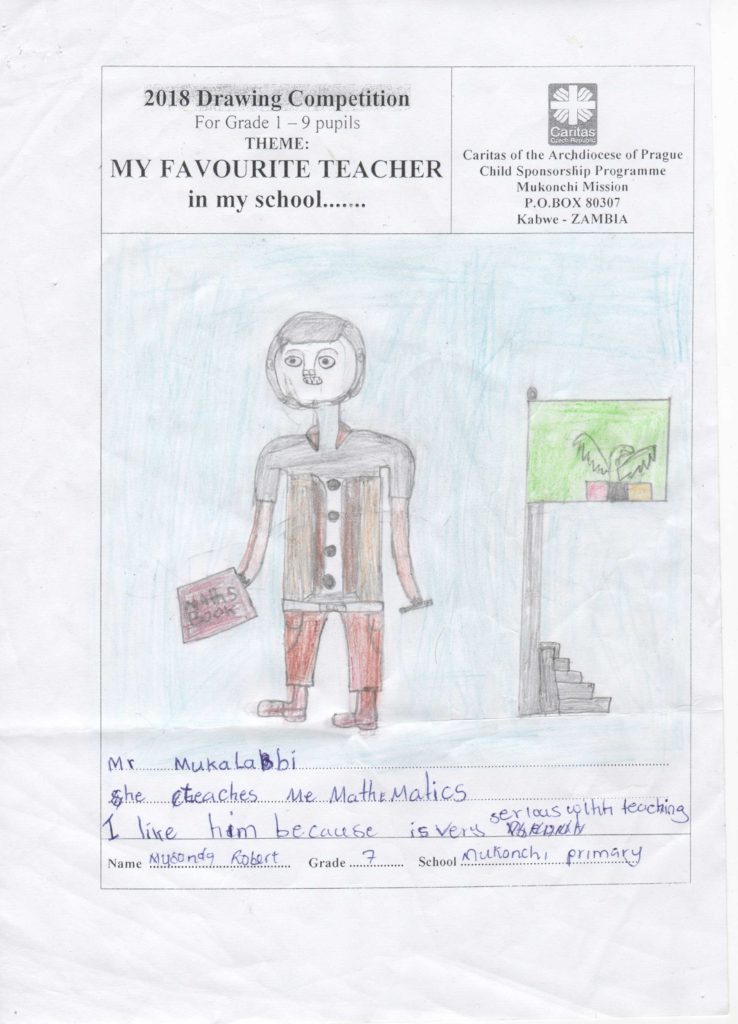 2018 Drawing Competition
For Grade 1 – 9 pupils
THEME:
MY FAVOURITE TEACHER
in my school.......
Caritas
Czech Republic
Caritas of the Archdiocese of Prague
Child Sponsorship Programme
Mukonchi Mission
P.O.BOX 80307
Kabwe - ZAMBIA
Maths
Book
Mr Mukalabbi
She teaches me Mathematics
I like him because is very serious withh teaching
Name Musonda Robert Grade 7 School Mukonchi primary